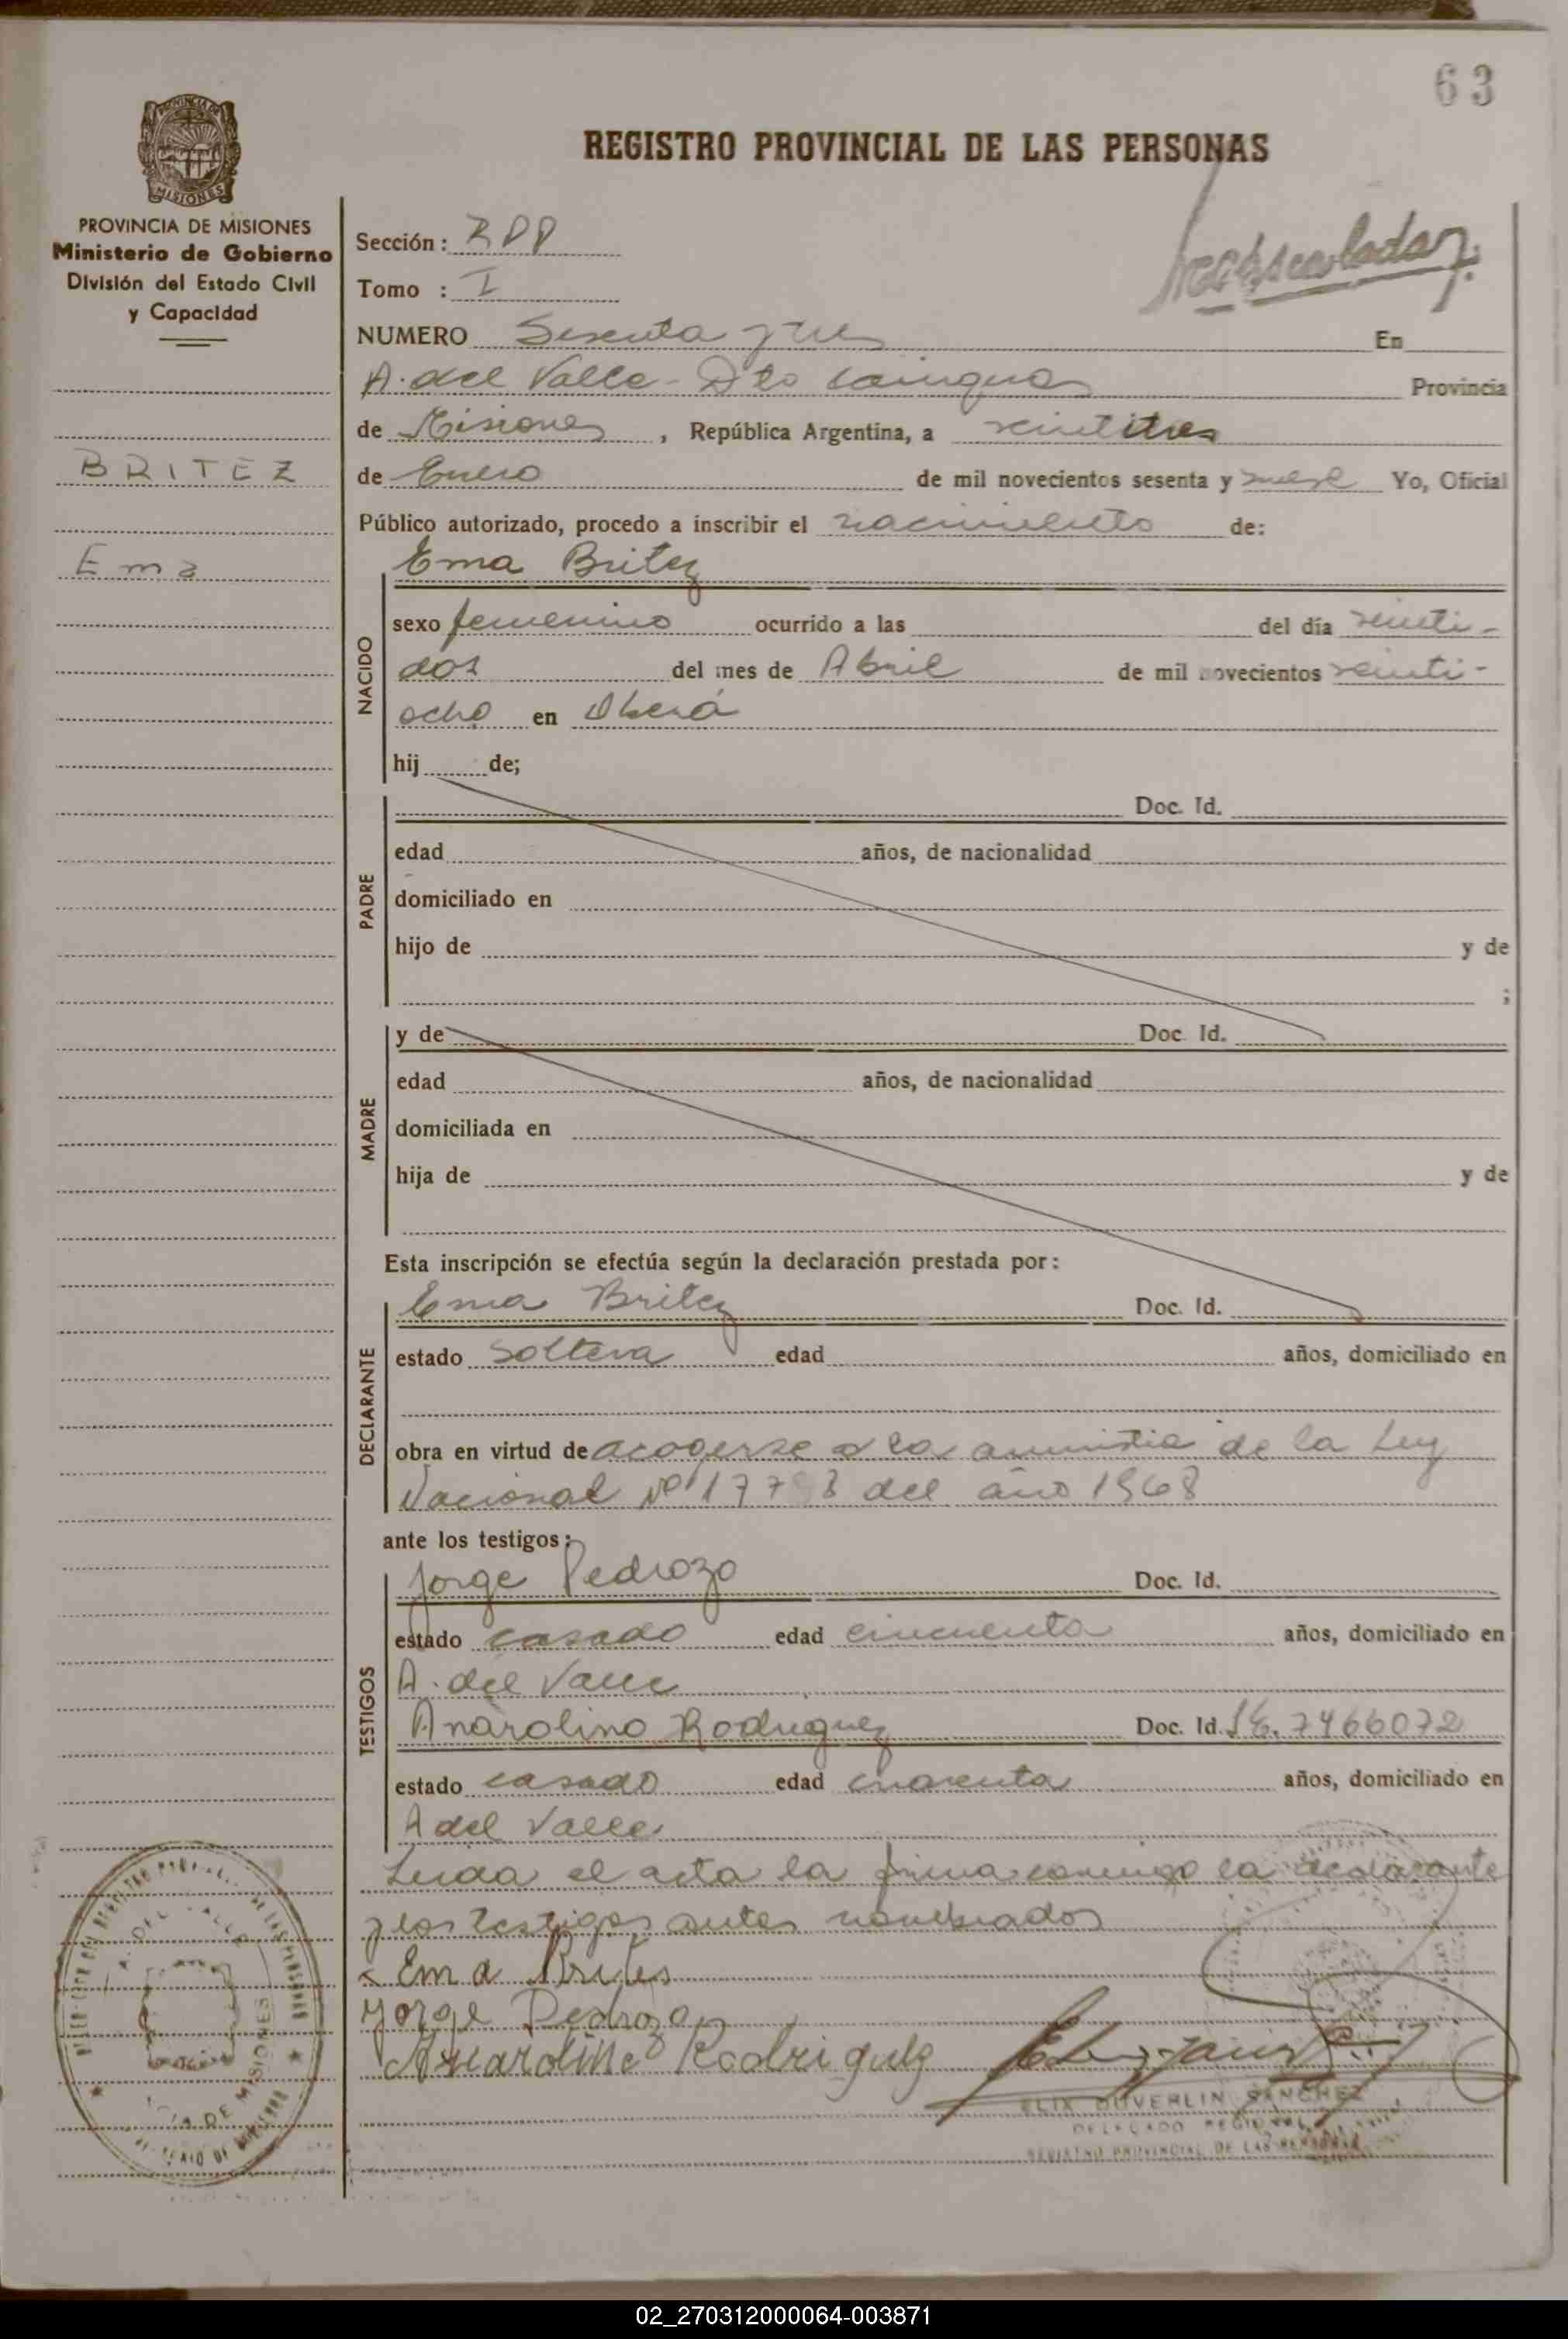 63
REGISTRO PROVINCIAL DE LAS PERSONAS
PROVINCIA DE MISIONES
MISIONES
PROVINCIA DE MISIONES
Ministerio de Gobierno
División del Estado Civil
y Capacidad
BRITEZ
Ema
Sección:
Tomo : I
NUMERO Sesenta y tres En
A. del Valle - Dto Cainguas Provincia
de Misiones, República Argentina, a veintitres
de Enero de mil novecientos sesenta y nueve Yo, Oficial
Público autorizado, procedo a inscribir el nacimiento de:
NACIDO
Ema Britez
sexo femenino ocurrido a las del día veinti-
dos del mes de Abril de mil novecientos veinti-
ocho en Oberá
hij de;
PADRE
Doc. Id.
edad años, de nacionalidad
domiciliado en
hijo de y de
;
MADRE
y de Doc. Id.
edad años, de nacionalidad
domiciliada en
hija de y de
Esta inscripción se efectúa según la declaración prestada por:
DECLARANTE
Ema Britez Doc. Id.
estado Soltera edad años, domiciliado en
obra en virtud de acogerse a la amnistia de la Ley
Nacional Nº del año 1968
ante los testigos:
TESTIGOS
Jorge Pedrozo Doc. Id.
estado casado edad cincuenta años, domiciliado en
A. del Valle
Anarolino Rodriguez Doc. Id. 7466072
estado casado edad cuarenta años, domiciliado en
A del Valle
Leida el acta la firma conmigo la declarante
y los testigos antes nombrados
x Ema Brites
Jorge Pedrozo
Anarolino Rodriguez
ELIX DUVERLIN SANCHEZ
DELEGADO REGIONAL
REGISTRO PROVINCIAL DE LAS PERSONAS
02_270312000064-003871